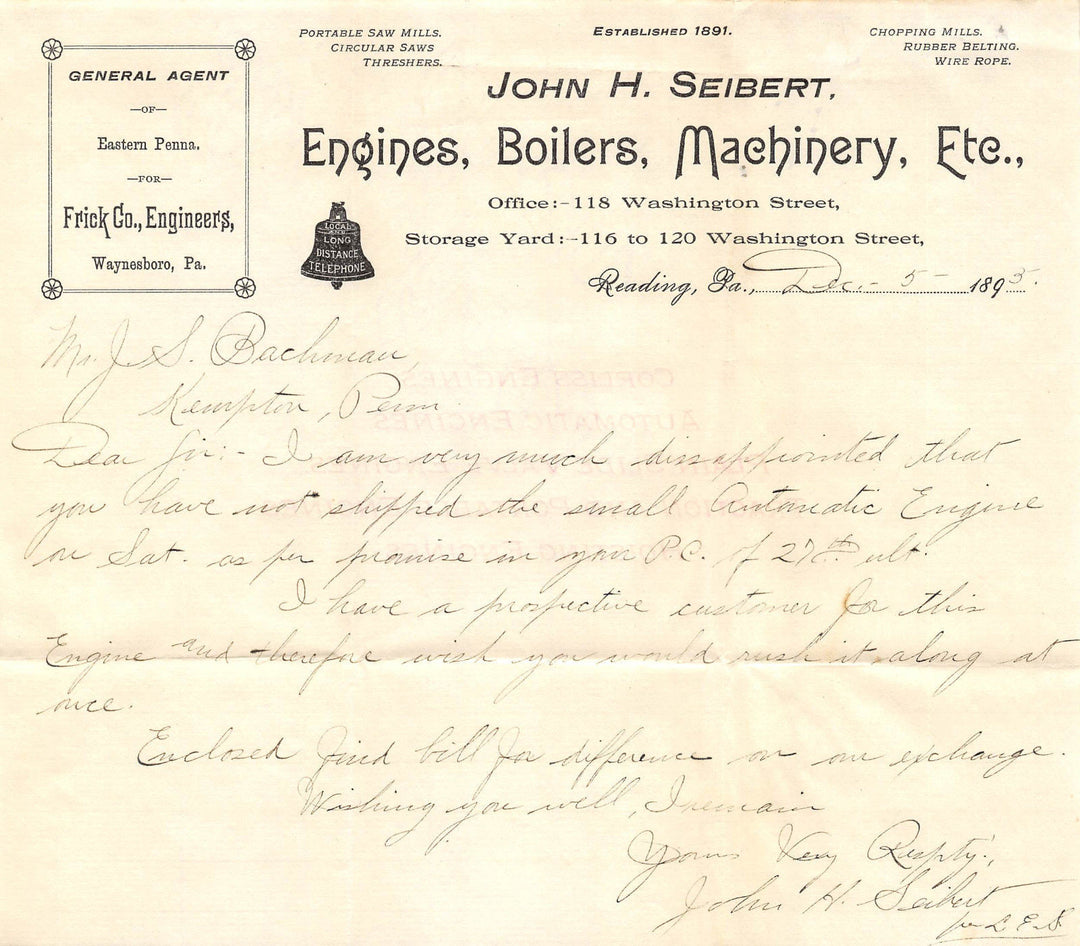 GENERAL AGENT
—OF—
Eastern Penna.
—FOR—
Frick Co., Engineers,
Waynesboro, Pa.
PORTABLE SAW MILLS.
CIRCULAR SAWS
THRESHERS.
ESTABLISHED 1891.
CHOPPING MILLS.
RUBBER BELTING.
WIRE ROPE.
JOHN H. SEIBERT,
Engines, Boilers, Machinery, Etc.,
Office:-118 Washington Street,
Storage Yard:-116 to 120 Washington Street,
LOCAL
AND
LONG
DISTANCE
TELEPHONE
Reading, Pa., Dec. - 5 - 1895.
Mr. J. S. Bachman,
Kempton, Penn.
Dear Sir:- I am very much dissappointed that
you have not shipped the small Automatic Engine
on Sat. as per promise in your P.C. of 27th ult.
I have a prospective customer for this
Engine and therefore wish you would rush it along at
once.
Enclosed find bill for difference on our exchange.
Wishing you well, I remain
Yours Very Respty.,
John H. Seibert
per L. E. S.
CORLISS ENGINES
AUTOMATIC ENGINES